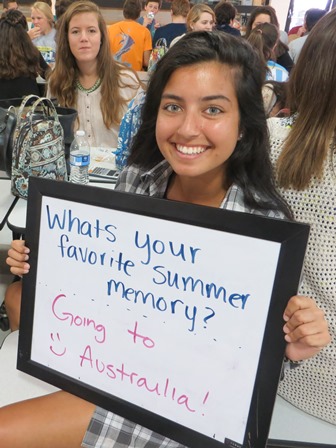 Whats your
favorite Summer
memory?
Going to
Austrailia!